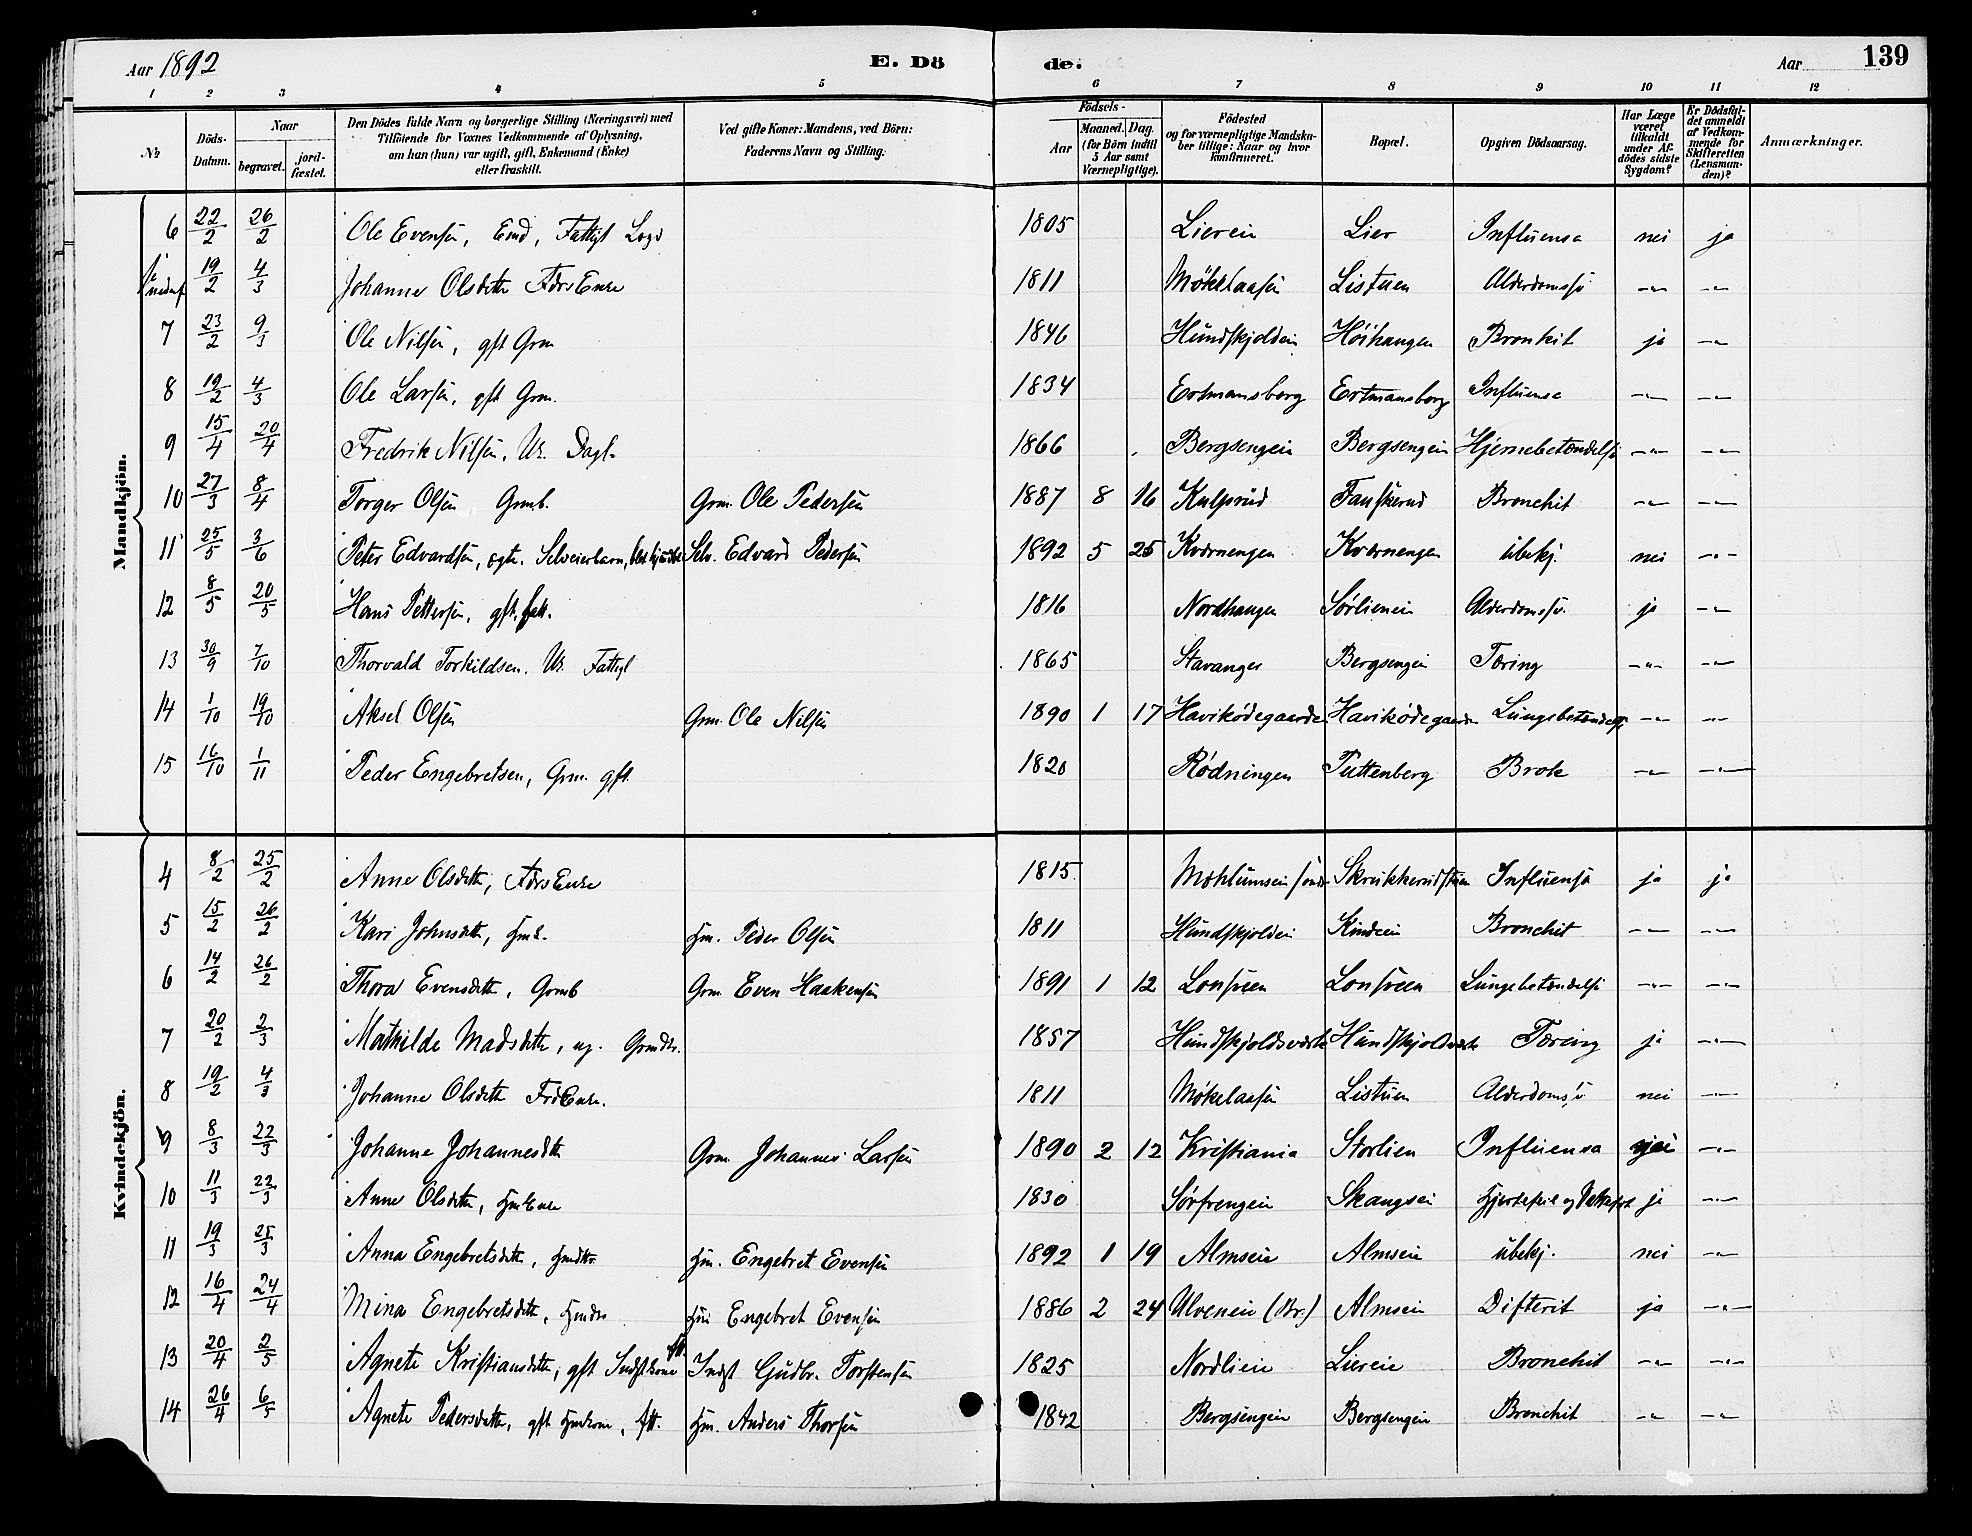 Aar 1892 E. Döde. Aar 139
1 2 3 4 5 6 7 8 9 10 11 12
№ Döds-Datum. Naar begravet. jord-fæstet. Den Dödes fulde Navn og borgerlige Stilling (Næringsvei) med Tilföiende for Voxnes Vedkommende af Oplysning, om han (hun) var ugift, gift, Enkemand (Enke) eller fraskilt. Ved gifte Koner: Mandens, ved Börn: Faderens Navn og Stilling. Födsels- Aar Maaned. Dag. (for Börn indtil 5 Aar samt Værnepligtige). Födested og for værnepligtige Mandskaber tillige: Naar og hvor konfirmeret. Bopæl. Opgiven Dödsaarsag. Har Læge været tilkaldt under Afdödes sidste Sygdom? Er Dödsfaldet anmeldt af Vedkommende for Skifteretten (Lensmanden)? Anmærkninger.
Mandkjön.
6 22/2 26/2 Ole Evensen, Emd, Fattigl Logd 1805 Liereie Lier Influensa nei ja
19/2 4/3 Johanne Olsdtr FdrsEnke 1811 Mökelaasen Listuen Alderdomssv -"- -"-
7 23/2 9/3 Ole Nilsen, gft Grm 1846 Hundskjoldei Höihaugen Bronkit ja -"-
8 19/2 4/3 Ole Larsen, gft Grm. 1834 Ertmansberg Ertmansberg Influensa -"- -"-
9 15/4 20/4 Fredrik Nilsen. Uk. Dagl. 1866 Bergsengein Bergsengein Hjernebetændelse -"- -"-
10 27/3 8/4 Torger Olsen Grmb. Grm. Ole Pedersen 1887 8 16 Kulpsrud Fauskerud Bronchit -"- -"-
11 25/5 3/6 Peter Edvardsen, ægte. Selveierbarn, Selv. Edvard Pedersen 1892 5 25 Kværnengen Kværnengen Ubekj. nei -"-
12 8/5 20/5 Hans Pettersen, gft. fatt. 1816 Nordhaugen Sørlieneie Alderdomssv. ja -"-
13 30/9 7/10 Thorvald Torkildsen. Uk. Fattigl 1865 Stavanger Bergsengein Tæring -"- -"-
14 1/10 19/10 Aksel Olsen Grm. Ole Nilsen 1890 1 17 Havikødegaarde Havikødegaarde Lungebetændelse -"- -"-
15 16/10 1/11 Peder Engebretsen, Grm. gft. 1820 Rödningen Tuttenberg Brok -"- -"-
Kvindekjön.
4 8/2 25/2 Anne Olsdtr, FdrsEnke 1815 Mohlumseie søndr Skrukkerudstuen Influensa ja ja
5 15/2 26/2 Kari Johnsdtr, Hmk. Hm. Peder Olsen 1811 Hundskjoldei Kindeie Bronchit -"- -"-
6 14/2 26/2 Thora Evensdtr, Grmb Grm. Even Haakensen 1891 1 12 Lonsveen Lonsveen Lungebetændelse -"- -"-
7 20/2 2/3 Mathilde Madsdtr, ug. Grmdtr. 1857 Hundskjoldsværk Hundskjoldværk Tæring ja -"-
8 19/2 4/3 Johanne Olsdtr FrdEnke. 1811 Mökelaasen Listuen Alderdomssv nei -"-
9 8/3 22/3 Johanne Johannesdtr Grm Johannes Larsen 1890 2 12 Kristiania Storlien Influensa -"-
10 11/3 22/3 Anne Olsdtr, HmEnke 1830 Sörfrengeie Skaugseie Hjertefeil og ja -"-
11 19/3 25/3 Anna Engebretsdtr, Hmdtr Hm. Engebret Evensen 1892 1 19 Almseie Almseie Ubekj. nei -"-
12 16/4 24/4 Mina Engebretsdtr, Hmdtr Hm Engebret Evensen 1886 2 24 Ulveneie (Br.) Almseie Difterit ja -"-
13 20/4 2/5 Agnete Kristiansdtr, gft Indstkone ftt. Indst Gudbr. Torstensen 1825 Nordlieie Liereie Bronchit -"- -"-
14 26/4 6/5 Agnete Pedersdtr, gft Hmkone, ftt. Hm. Anders Thorsen 1842 Bergsengein Bergsengein Bronchit -"- -"-